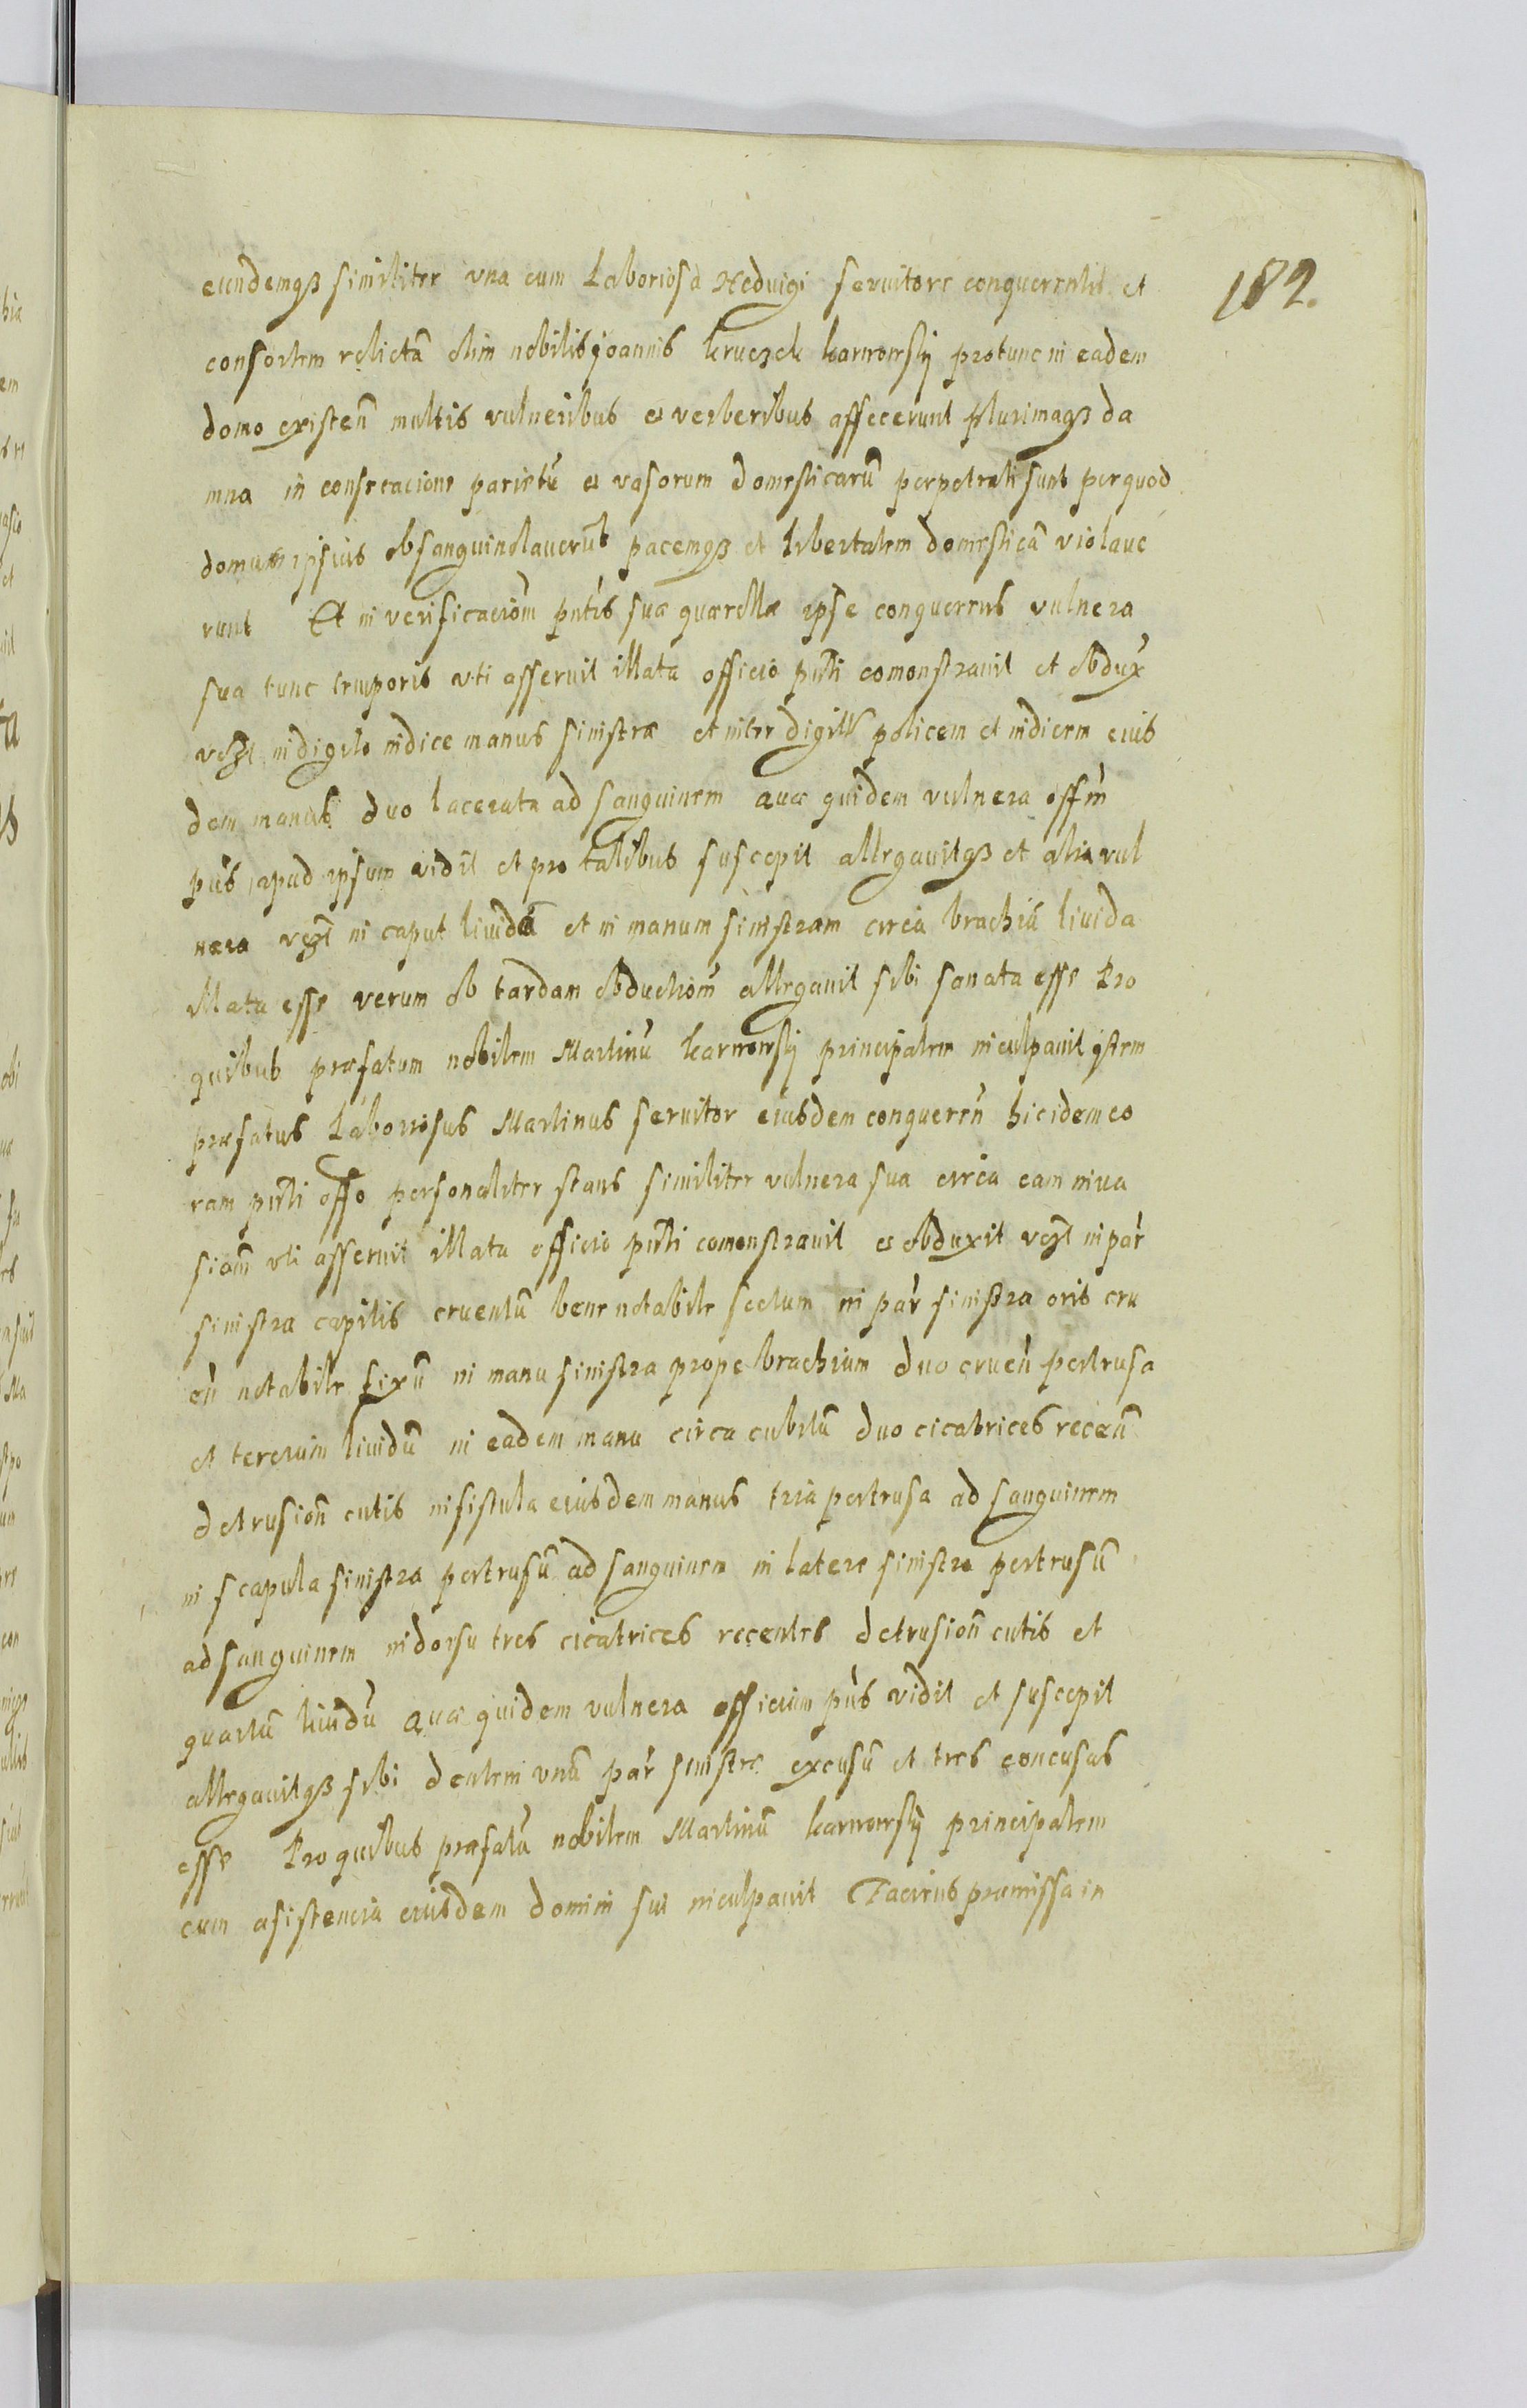 182.
eundemqz similiter vna cum Laboriosa Heduigi seruitore conquerentis et
consortem relictā olim nobilis Joannis kruczek karwowsky protunc in eadem
domo existeñ multis vulneribus et verberibus affecerunt plurimaqz da
mna in consecacione parietū et vasorum domesticarū perpetrati sunt per quod
domum ipsius obsanguinolauerūt pacemqz et libertatem domesticā violaue
runt Et in verificacionm pñtis suæ quærellæ ipse conquerens vulnera
sua tunc temporis vti asseruit illata officio pñti comonstrauit et obdux
vczt in digito indice manus sinistræ et inter digitos policem et indicem eius
dem manus duo lacerata ad sanguinem quæ quidem vulnera offm
pñs apud ipsum vidit et pro talibus suscepit allegauitqz et alia vul
nera vczt in caput liuida et in manum sinistram circa brachiū liuida
illata esse verum ob tardam obductionm allegauit sibi sanata esse Pro
quibus præfatum nobilem Martinū karwowsky principalem inculpauit Item
præfatus Laboriosus Martinus seruitor eiusdem conqueren hic idem co
ram pñti offo personaliter stans similiter vulnera sua circa eam inua
sionm vti asseruit illata officio pñti comonstrauit et obduxit vczt in par
sinistra capitis cruentū bene notabile sectum in par sinistra oris cru
en notabile fixū in manu sinistra prope brachium duo cruen pertrusa
et tercium liuidū in eadem manu circa cubitū duo cicatrices receñ
detrusioñ cutis in fistula eiusdem manus tria pertrusa ad sanguinem
in scapula sinistra pertrusū ad sanguinem in latere sinistro pertrusū
ad sanguinem in dorsu tres cicatrices recentes detrusioñ cutis et
quartū liuidū quæ quidem vulnera officium pñs vidit et suscepit
allegauitqz sibi dentem vnū par sinistre excusū et tres concusas
esse Pro quibus præfatū nobilem Martinū karwowsky principalem
cum asistencia eiusdem domini sui inculpauit Faciens præmissa in